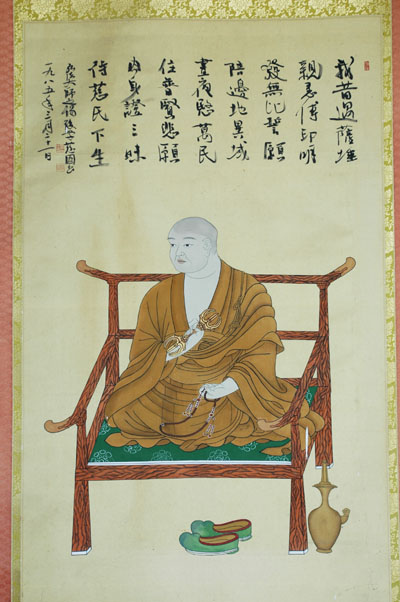 我昔遇薩埵
親悉傳印明
發無比誓願
陪邊地異域
晝夜愍萬民
住普賢悲願
肉身證三昧
待慈氏下生
弘法大師之偈
一九八五年三月二十一日